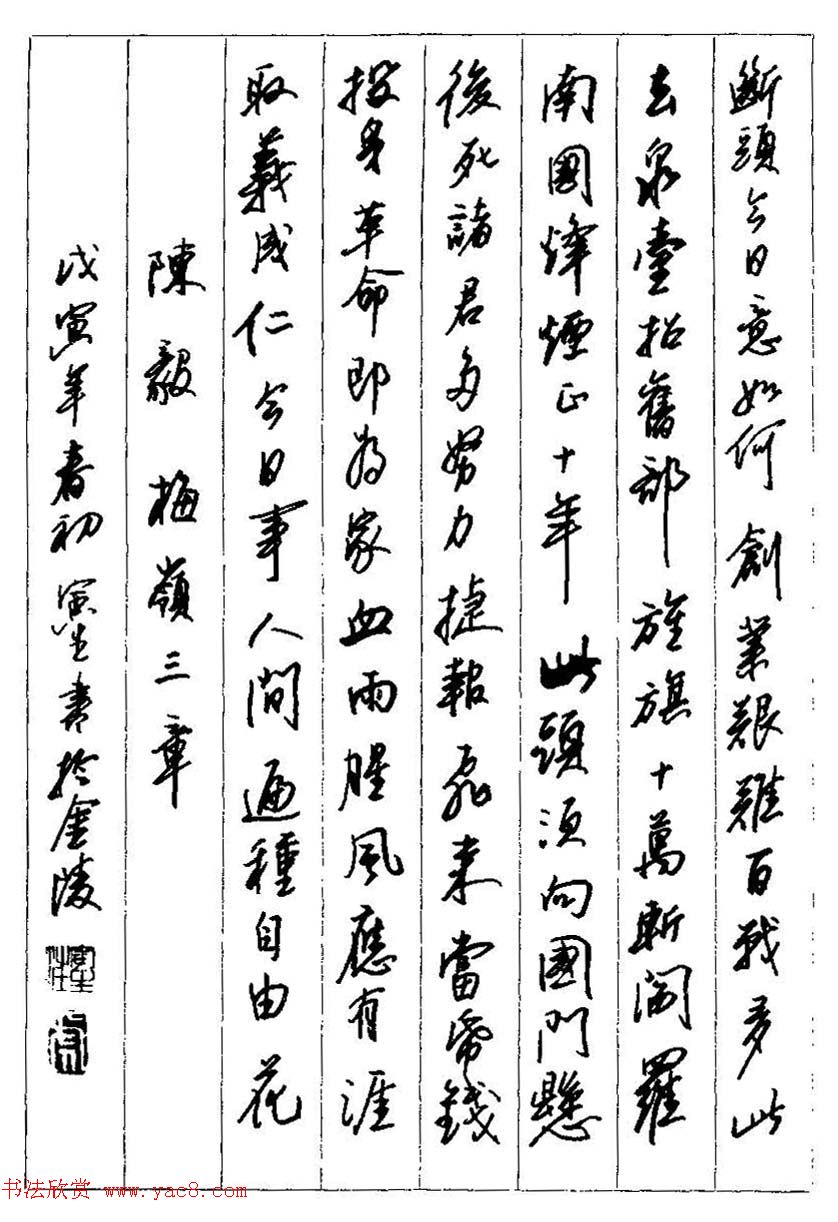 斷頭今日意如何創業艱難百戰多此
去泉臺招舊部旌旗十萬斬閻羅
南國烽煙正十年此頭須向國門懸
後死諸君多努力捷報飛來當紙錢
投身革命即為家血雨腥風應有涯
取義成仁今日事人間遍種自由花
陳毅 梅嶺三章
戊寅年春初寅生書於金陵
书法欣赏 www.yac8.com